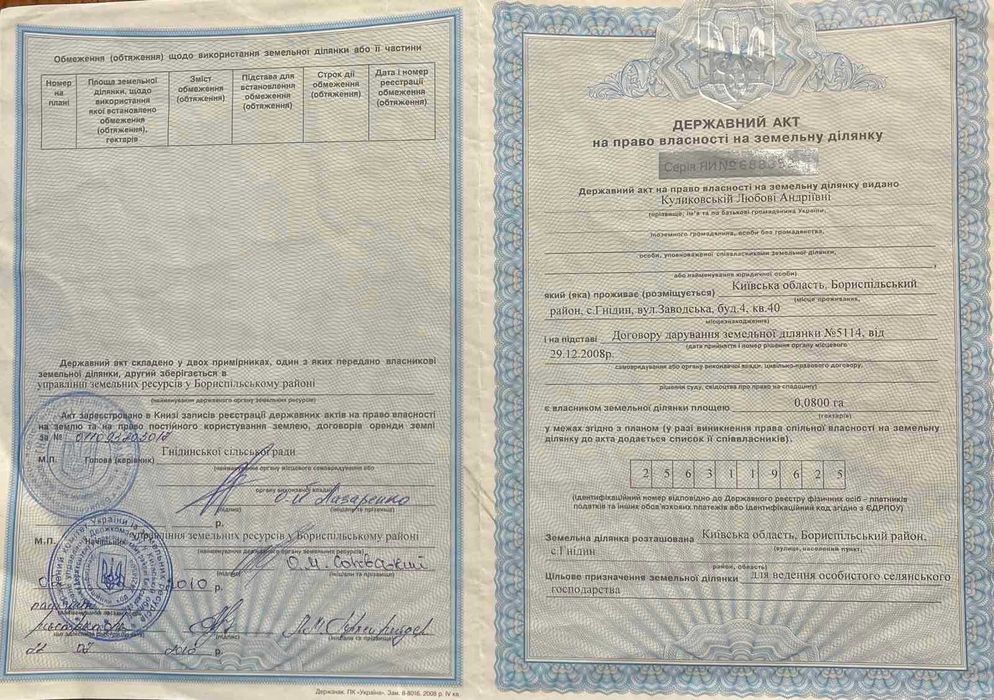 Обмеження (обтяження) щодо використання земельної ділянки або її частини
Номер на плані
Площа земельної ділянки, щодо використання якої встановлено обмеження (обтяження), гектарів
Зміст обмеження (обтяження)
Підстава для встановлення обмеження (обтяження)
Строк дії обмеження (обтяження)
Дата і номер реєстрації обмеження (обтяження)
Державний акт складено у двох примірниках, один з яких передано власникові
земельної ділянки, другий зберігається в
управлінні земельних ресурсів у Бориспільському районі
(найменування державного органу земельних ресурсів)
Акт зареєстровано в Книзі записів реєстрації державних актів на право власності
на землю та на право постійного користування землею, договорів оренди землі
за №
М.П. Голова (керівник) Гнідинської сільської ради
(найменування органу місцевого самоврядування або
органу виконавчої влади)
Лазаренко
(підпис) (ініціали та прізвище)
р.
М.П. Начальник управління земельних ресурсів у Бориспільському районі
(найменування державного органу земельних ресурсів)
О.М.
(підпис) (ініціали та прізвище)
2010 р.
(підпис) (ініціали та прізвище)
2010 р.
Держзнак. ПК «Україна». Зам. 8-8016. 2008 р. IV кв.
ДЕРЖАВНИЙ АКТ
на право власності на земельну ділянку
Серія ЯИ №
Державний акт на право власності на земельну ділянку видано
Куликовській Любові Андріївні
(прізвище, ім'я та по батькові громадянина України,
іноземного громадянина, особи без громадянства,
особи, уповноваженої співвласниками земельної ділянки,
або найменування юридичної особи)
який (яка) проживає (розміщується) Київська область, Бориспільський
(місце проживання,
район, с.Гнідин, вул.Заводська, буд.4, кв.40
місцезнаходження)
і на підставі Договору дарування земельної ділянки №5114, від
(дата прийняття і номер рішення органу місцевого
29.12.2008р.
самоврядування або органу виконавчої влади, цивільно-правового договору,
рішення суду, свідоцтва про право на спадщину)
є власником земельної ділянки площею 0,0800 га
(гектарів)
у межах згідно з планом (у разі виникнення права спільної власності на земельну
ділянку до акта додається список її співвласників).
2 5 6 3 1 1 9 6 2 5
(ідентифікаційний номер відповідно до Державного реєстру фізичних осіб – платників
податків та інших обов'язкових платежів або ідентифікаційний код згідно з ЄДРПОУ)
Земельна ділянка розташована Київська область, Бориспільський район,
(вулиця, населений пункт,
с.Гнідин
район, область)
Цільове призначення земельної ділянки для ведення особистого селянського
господарства